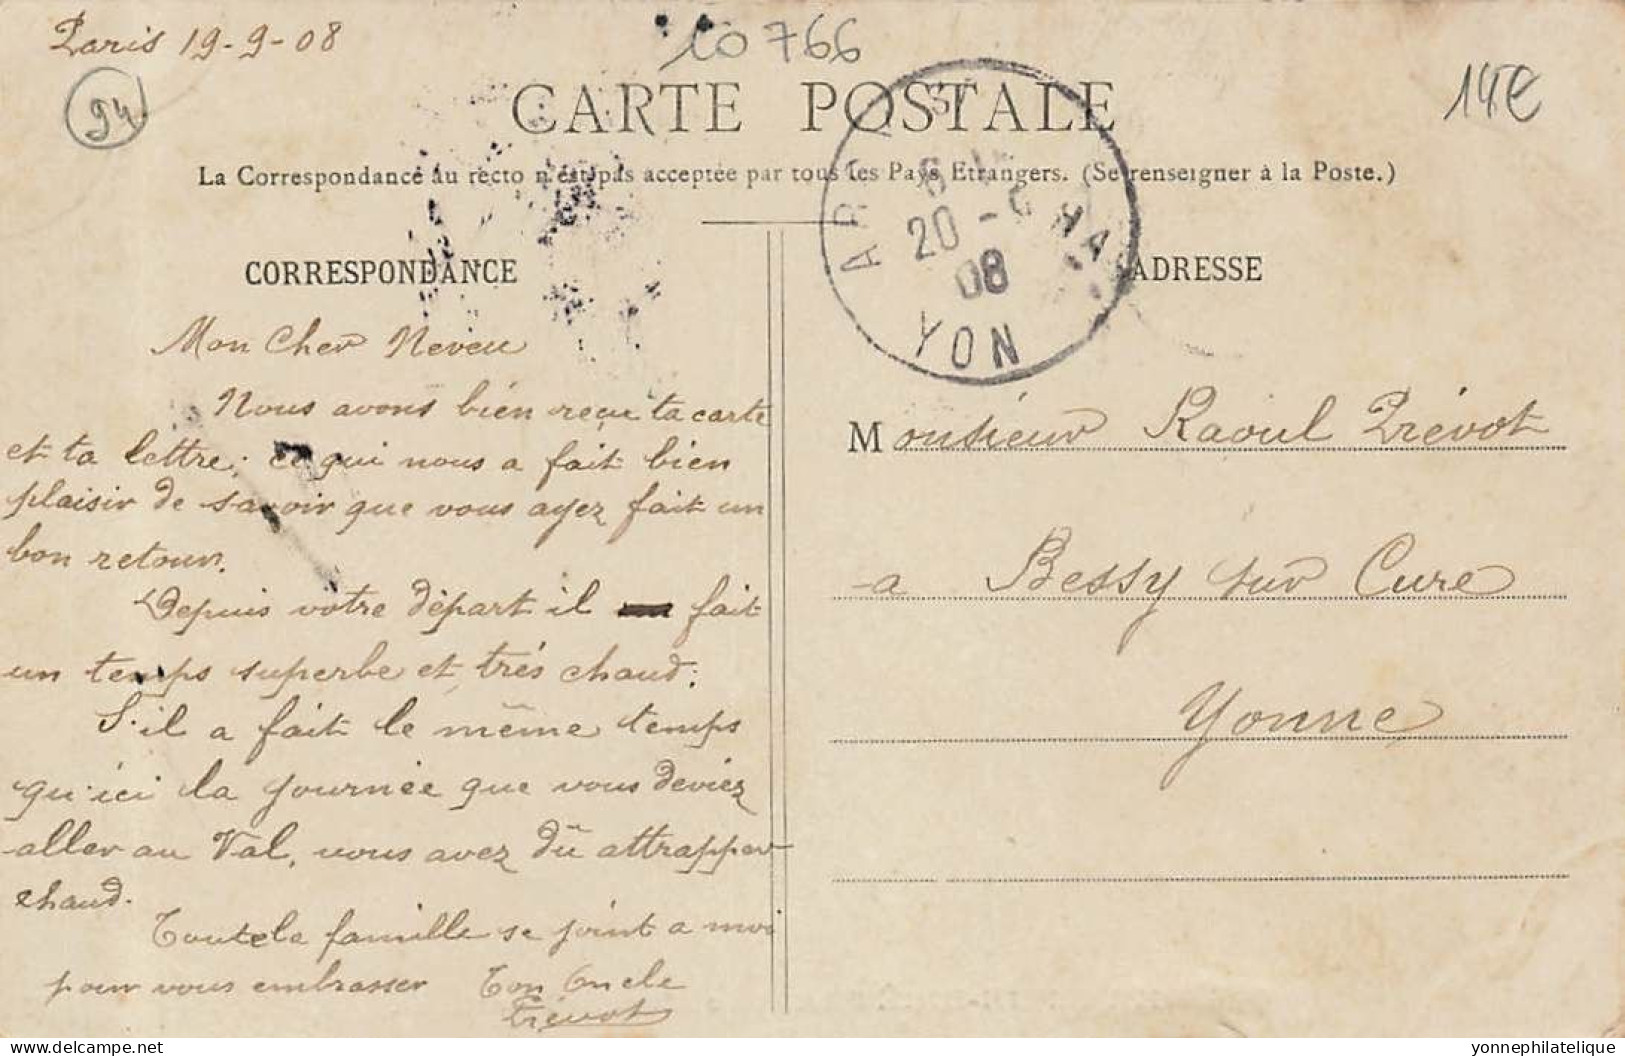 Paris 19-9-08
10766
94
14€
CARTE POSTALE
La Correspondance au recto n'est pas acceptée par tous les Pays Etrangers. (Se renseigner à la Poste.)
CORRESPONDANCE
Mon Cher Neveu
Nous avons bien reçu ta carte
et ta lettre; ce qui nous a fait bien
plaisir de savoir que vous ayez fait un
bon retour.
Depuis votre départ il fait
un temps superbe et très chaud.
S'il a fait le même temps
qu'ici la journée que vous deviez
aller au Val, vous avez dû attrapper
chaud.
Toute la famille se joint a moi
pour vous embrasser Ton Oncle
Prévot
20 -
08
YON
ADRESSE
Monsieur Raoul Prévot
a Bessy sur Cure
Yonne
delcampe.net
yonnephilatelique